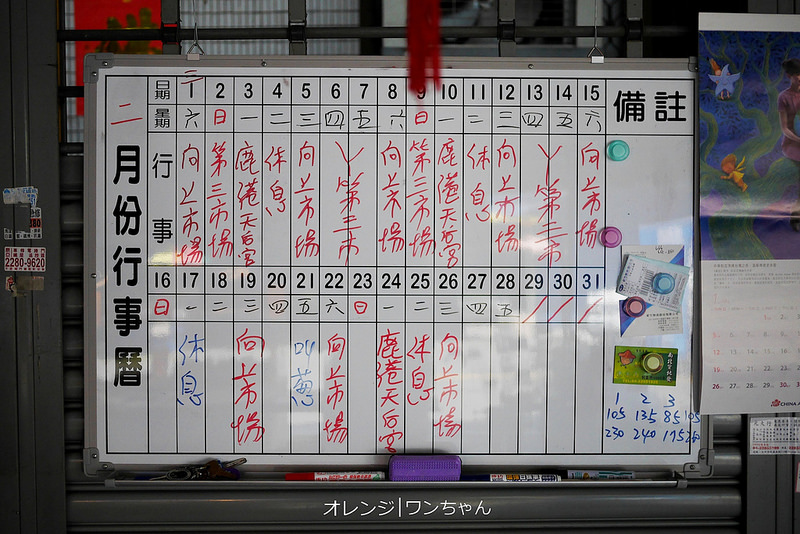 二
月份行事曆
日期 1 2 3 4 5 6 7 8 9 10 11 12 13 14 15 備註
星期 六 日 一 二 三 四 五 六 日 一 二 三 四 五 六
行事 向上市場 第三市場 鹿港天后宮 休息 向上市場 第三市 向上市場 第三市場 鹿港天后宮 休息 向上市場 第三市 向上市場
16 17 18 19 20 21 22 23 24 25 26 27 28 29 30 31
日 一 二 三 四 五 六 日 一 二 三 四 五
休息 向上市場 向上市場 鹿港天后宮 休息 向上市場
1 2 3
105 135 85 105
230 240 175 250
2280-9620
CHINA A
オレンジ|ワンちゃん